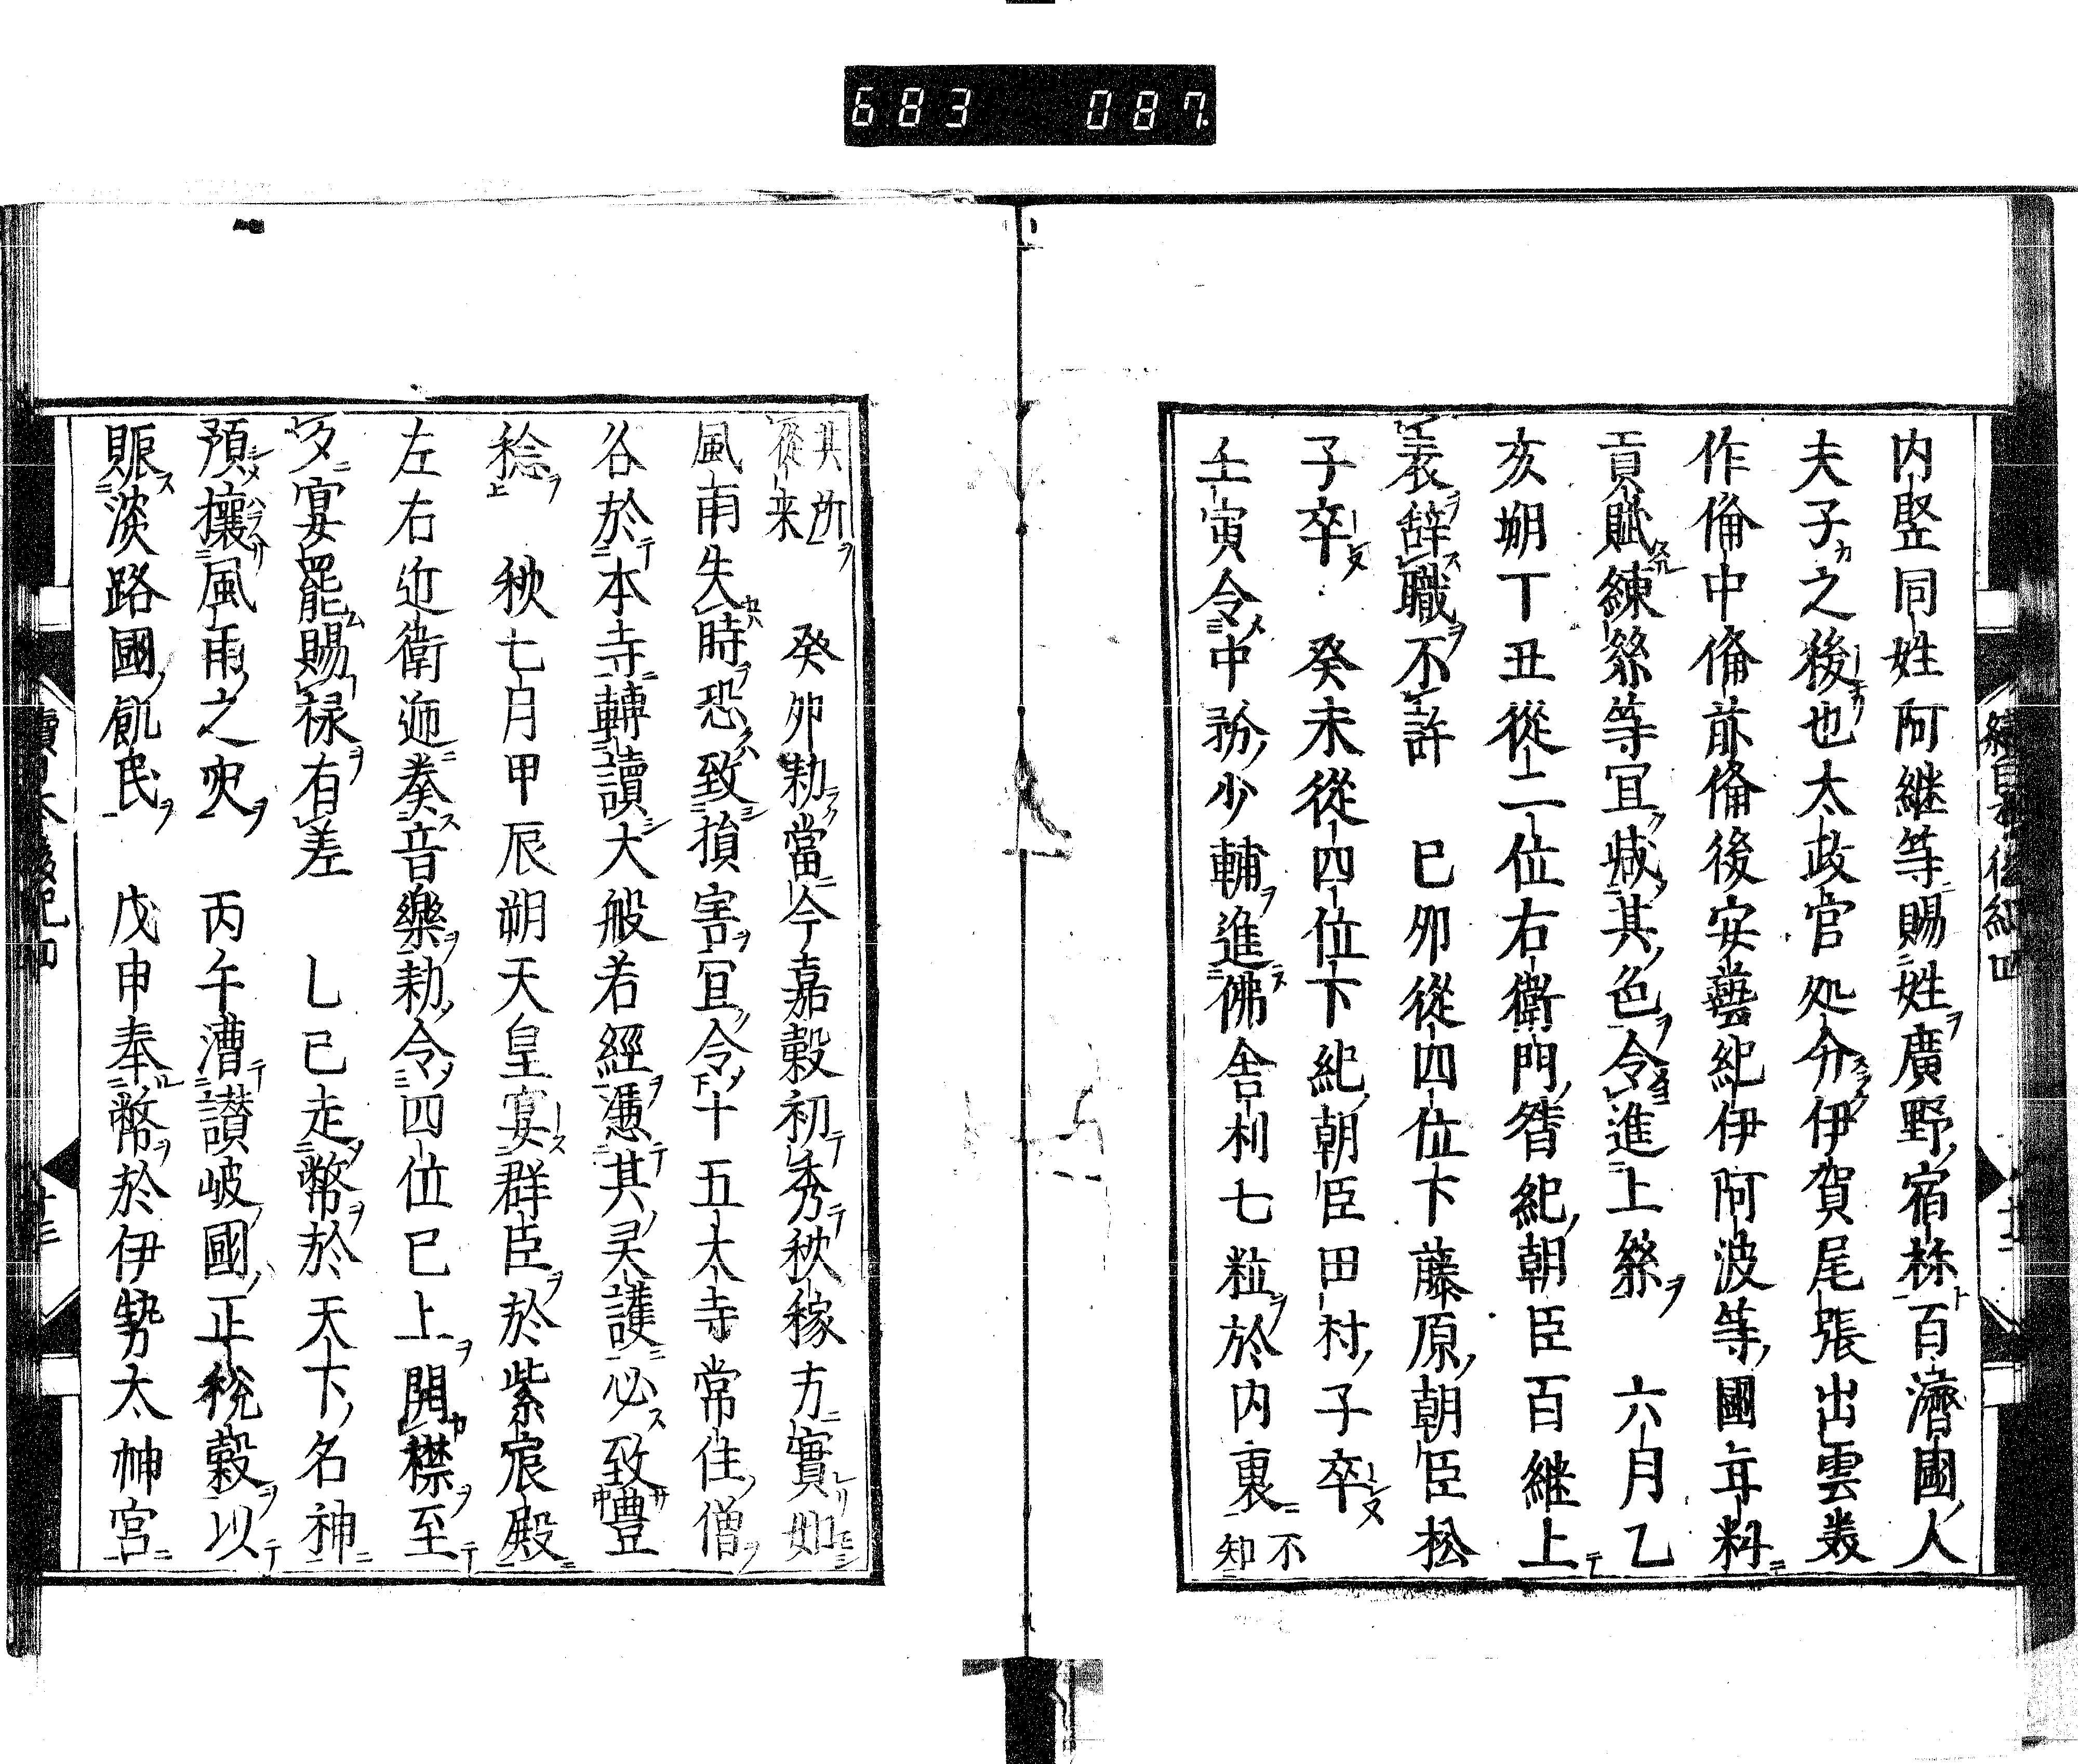 683 087
内竪同姓阿継等賜姓廣野宿祢百濟國人
夫子之後也太政官処分伊賀尾張出雲美
作俻中俻前俻後安藝紀伊阿波等國年料
貢賦練絲等宜减其色令進上絲 六月乙
亥朔丁丑從二位右衛門督紀朝臣百継上
表辞職不許 已卯從四位下藤原朝臣松
子卒 癸未從四位下紀朝臣田村子卒
壬寅令中務少輔進佛舎利七粒於内裏不知
其所從来 癸卯勅當今嘉穀初秀秋稼方實如
風雨失時恐致損害宜令十五大寺常住僧
各於本寺轉讀大般若經憑其灵護必致豊
稔 秋七月甲辰朔天皇宴群臣於紫宸殿
左右近衛逓奏音樂勅令四位已上開襟至
夕宴罷賜禄有差 乚已走幣於天下名神
預攘風雨之灾 丙午漕讃岐國正税穀以
賑淡路國飢民 戊申奉幣於伊勢太神宮